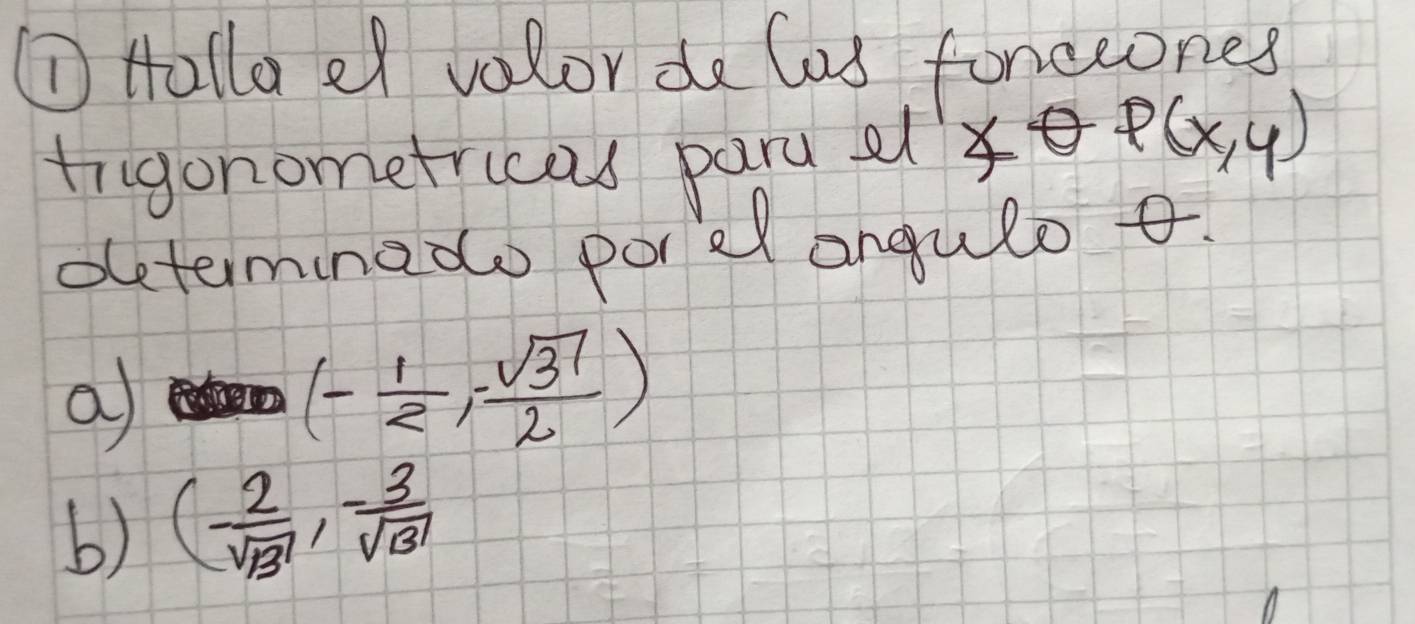 ① Halla el valor de las fonciones
trigonometricas para el ∡ θ P(x,y)
determinado por el angulo θ.
a) (- 1/2, -√3/2)
b) (-2/√13, -3/√13